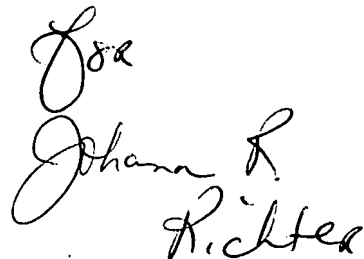 For
Johann R.
Richter